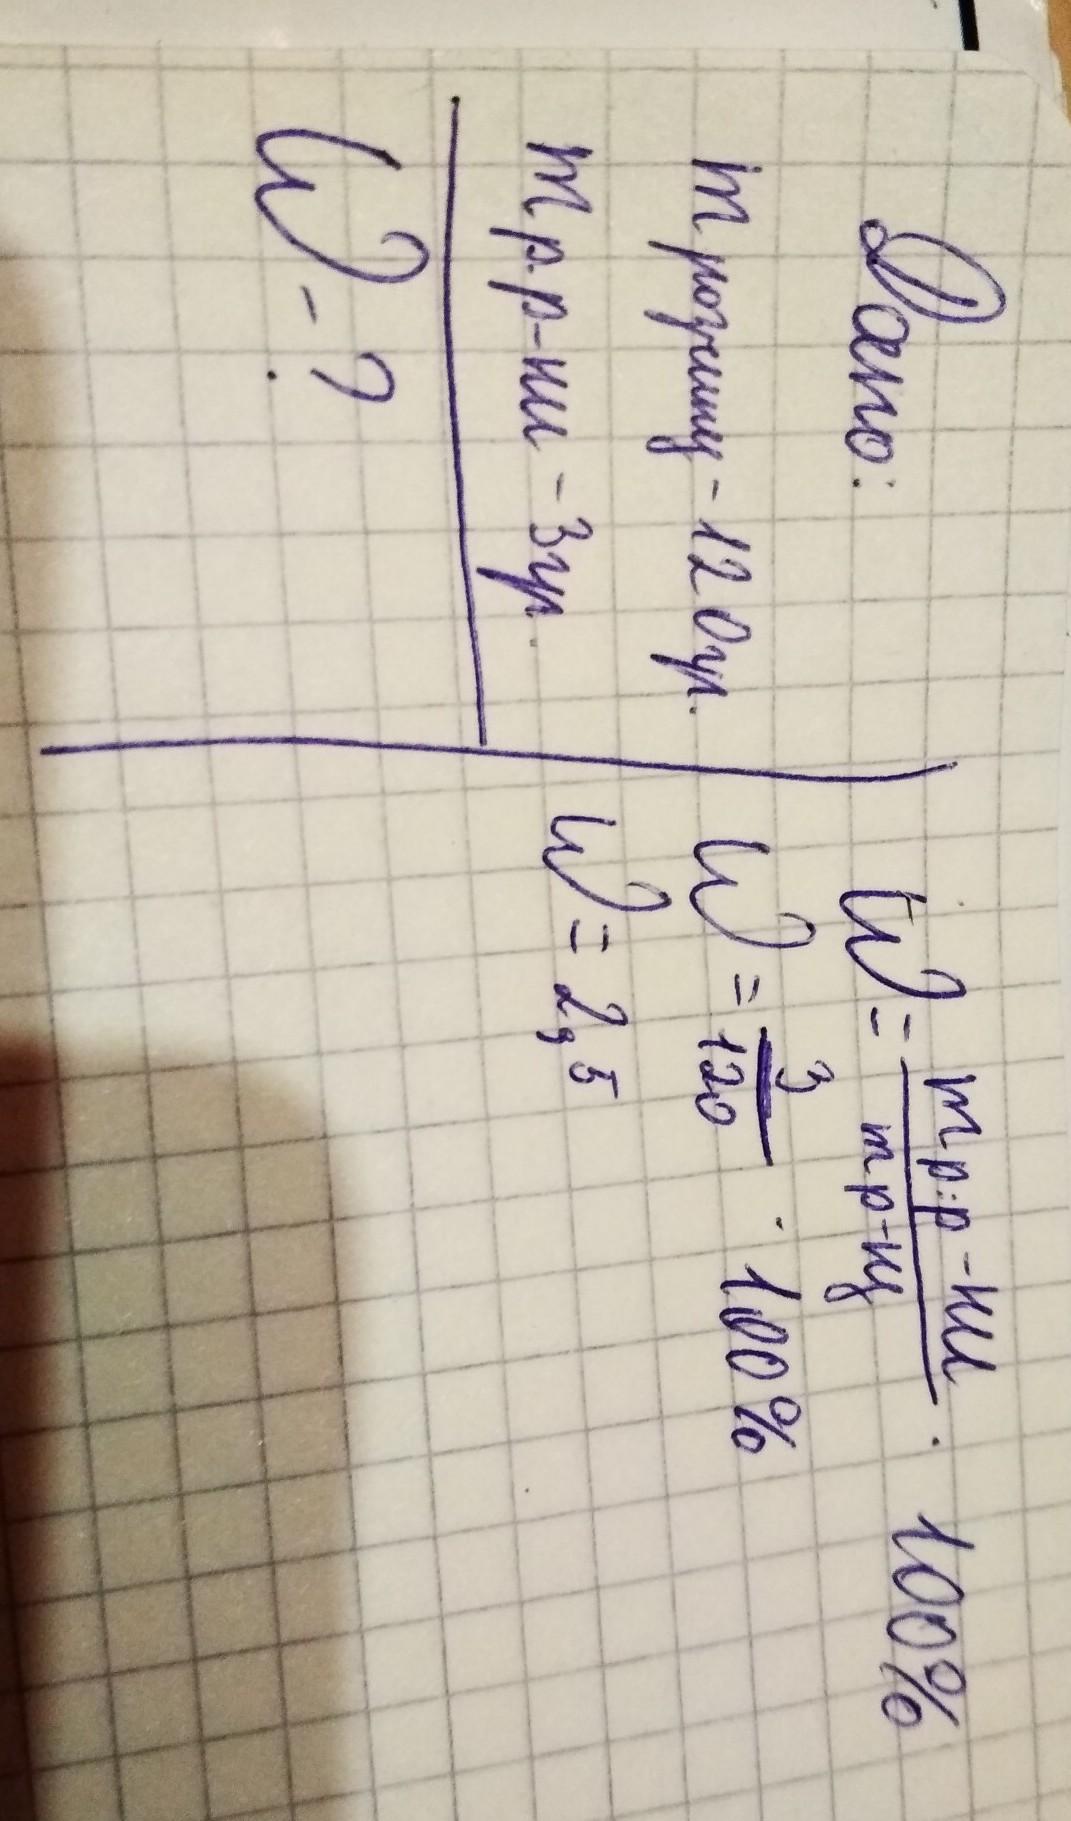 Дано:
m розчину - 120гр.
m р.р-ни - 3гр.
W - ?
W = m р.р-ни / m р-ну · 100%
W = 3 / 120 · 100%
W = 2,5